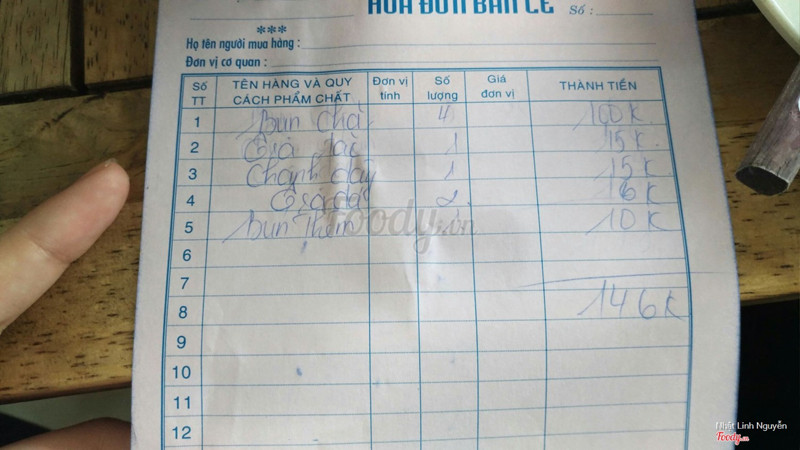 HÓA ĐƠN BÁN LẺ Số :
***
Họ tên người mua hàng :
Đơn vị cơ quan :
Số TT TÊN HÀNG VÀ QUY CÁCH PHẨM CHẤT Đơn vị tính Số lượng Giá đơn vị THÀNH TIỀN
1 bún chả 4 100K
2 1 15K
3 Chanh dây 1 15K
4 2 16K
5 bún thêm 1 10K
6
7
8 146K
9
10
11
12
foody.vn
Nhật Linh Nguyễn
Foody.vn